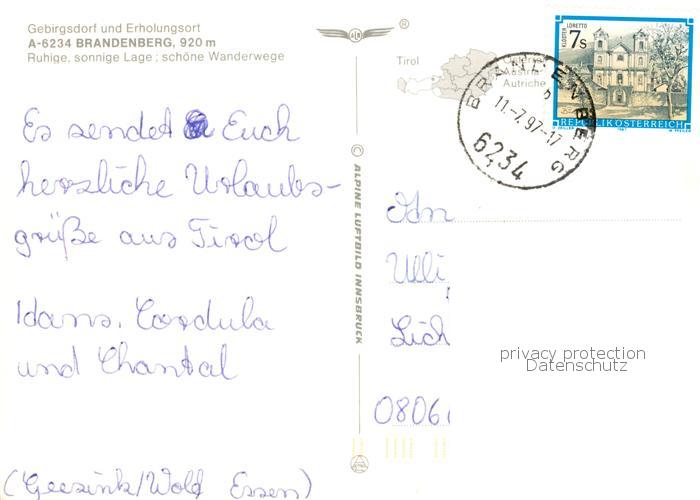 Gebirgsdorf und Erholungsort
A-6234 BRANDENBERG, 920 m
Ruhige, sonnige Lage ; schöne Wanderwege
ALM
®
Tirol
Österreich
Austria
Autriche
KLOSTER LORETTO
7s
REPUBLIK ÖSTERREICH
1987
BRANDENBERG
b
11.-7.97-17
6234
Es sendet Euch
herzliche Urlaubs-
grüße aus Tirol
Cordula
und Chantal
© ALPINE LUFTBILD INNSBRUCK
An
Ulli
Lich
0806
privacy protection
Datenschutz
Essen)